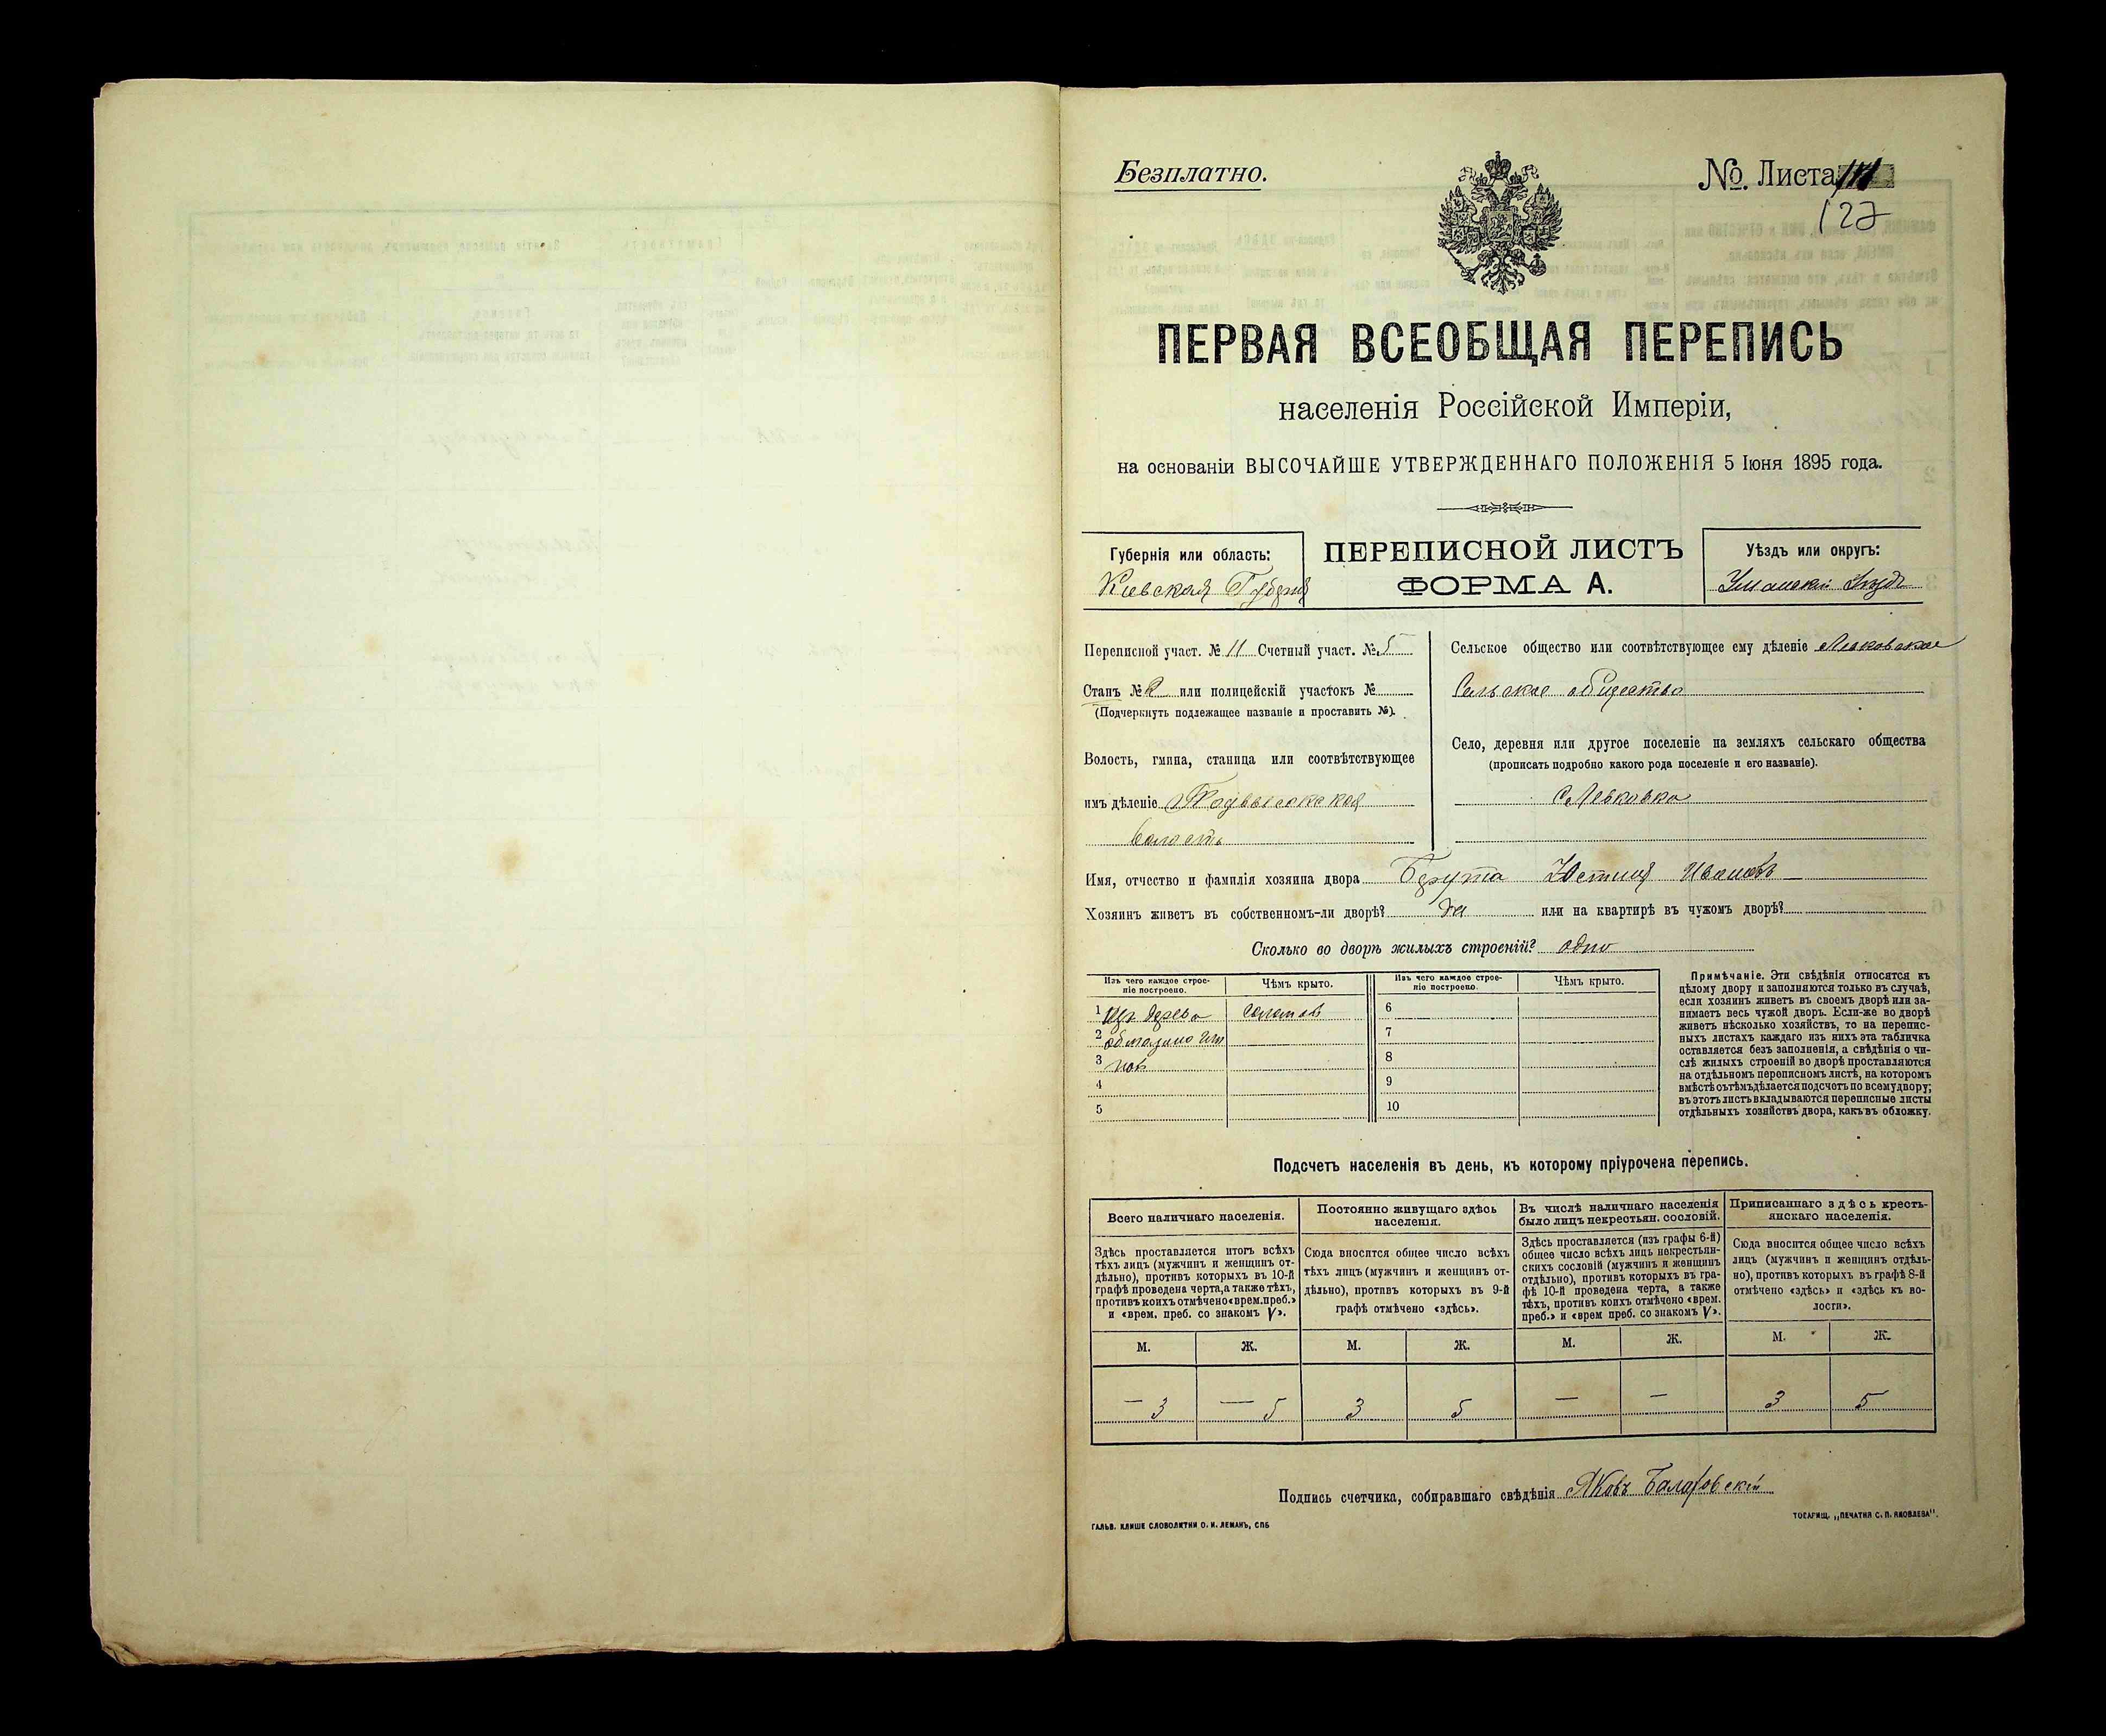 Безплатно.
№. Листа
127
ПЕРВАЯ ВСЕОБЩАЯ ПЕРЕПИСЬ
населенія Россійской Имперіи,
на основаніи ВЫСОЧАЙШЕ УТВЕРЖДЕННАГО ПОЛОЖЕНІЯ 5 Іюня 1895 года.
Губернія или область:
Киевская Губерния
ПЕРЕПИСНОЙ ЛИСТЪ
ФОРМА А.
Уѣздъ или округъ:
Уманский Уездъ
Переписной участ. № 11 Счетный участ. № 5
Станъ № 2 или полицейскій участокъ №
(Подчеркнуть подлежащее названіе и проставить №).
Волость, гмина, станица или соотвѣтствующее
имъ дѣленіе Подвысокская
Волость
Сельское общество или соотвѣтствующее ему дѣленіе Левковское
Сельское общество
Село, деревня или другое поселеніе на земляхъ сельскаго общества
(прописать подробно какого рода поселеніе и его названіе).
с. Левковка
Имя, отчество и фамилія хозяина двора Устинъ Ивановъ
Хозяинъ живетъ въ собственномъ-ли дворѣ? да или на квартирѣ въ чужомъ дворѣ?
Сколько во дворѣ жилыхъ строеній? одно
Изъ чего каждое строе-
ніе построено.
Чѣмъ крыто.
Изъ чего каждое строе-
ніе построено.
Чѣмъ крыто.
1 Изъ дерева соломой 6
2 обмазано гли 7
3 ной 8
4 9
5 10
Примѣчаніе. Эти свѣдѣнія относятся къ
цѣлому двору и заполняются только въ случаѣ,
если хозяинъ живетъ въ своемъ дворѣ или за-
нимаетъ весь чужой дворъ. Если-же во дворѣ
живетъ нѣсколько хозяйствъ, то на перепис-
ныхъ листахъ каждаго изъ нихъ эта табличка
оставляется безъ заполненія, а свѣдѣнія о чи-
слѣ жилыхъ строеній во дворѣ проставляются
на отдѣльномъ переписномъ листѣ, на которомъ
вмѣстѣ съ тѣмъ дѣлается подсчетъ по всему двору;
въ этотъ листъ вкладываются переписные листы
отдѣльныхъ хозяйствъ двора, какъ въ обложку.
Подсчетъ населенія въ день, къ которому пріурочена перепись.
Всего наличнаго населенія.
Здѣсь проставляется итогъ всѣхъ
тѣхъ лицъ (мужчинъ и женщинъ от-
дѣльно), противъ которыхъ въ 10-й
графѣ проведена черта, а также тѣхъ,
противъ коихъ отмѣчено «врем. преб.»
и «врем. преб. со знакомъ V».
Постоянно живущаго здѣсь
населенія.
Сюда вносится общее число всѣхъ
тѣхъ лицъ (мужчинъ и женщинъ от-
дѣльно), противъ которыхъ въ 9-й
графѣ отмѣчено «здѣсь».
Въ числѣ наличнаго населенія
было лицъ некрестьян. сословій.
Здѣсь проставляется (изъ графы 6-й)
общее число всѣхъ лицъ некрестьян-
скихъ сословій (мужчинъ и женщинъ
отдѣльно), противъ которыхъ въ гра-
фѣ 10-й проведена черта, а также
тѣхъ, противъ коихъ отмѣчено «врем.
преб.» и «врем преб. со знакомъ V».
Приписаннаго здѣсь кресть-
янскаго населенія.
Сюда вносится общее число всѣхъ
лицъ (мужчинъ и женщинъ отдѣль-
но), противъ которыхъ въ графѣ 8-й
отмѣчено «здѣсь» и «здѣсь къ во-
лости».
М. Ж. М. Ж. М. Ж. М. Ж.
— 3 — 5 3 5 — — 3 5
Подпись счетчика, собиравшаго свѣдѣнія Яковъ
ГАЛЬВ. КЛИШЕ СЛОВОЛИТНИ О. И. ЛЕМАНЪ, СПБ
ТОВАРИЩ. „ПЕЧАТНЯ С. П. ЯКОВЛЕВА".